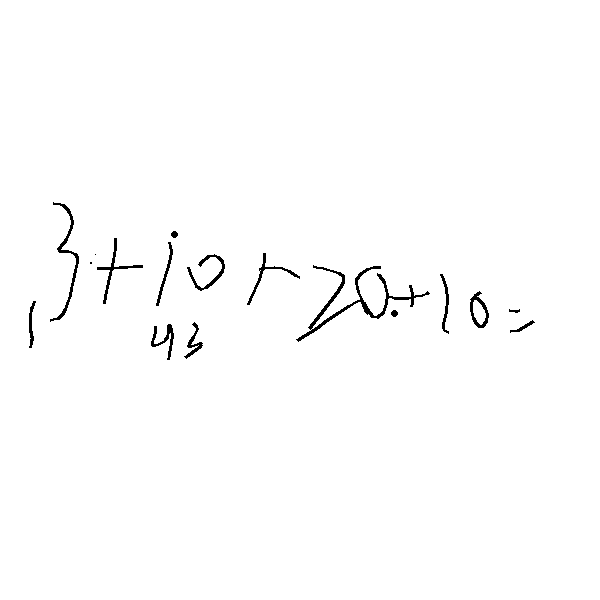 3+10+20+10=
43